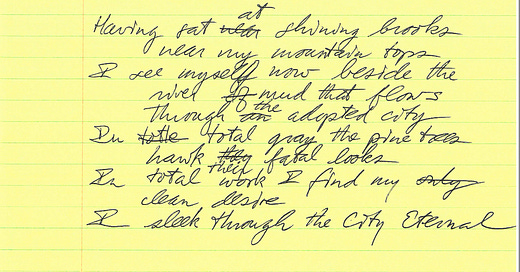 Having sat near at shining brooks
near my mountain tops
I see myself now beside the
river of mud that flows
through an of the adopted city
In total gray the pine trees
hawk their fatal looks
In total work I find my only
clean desire
I sleek through the City Eternal